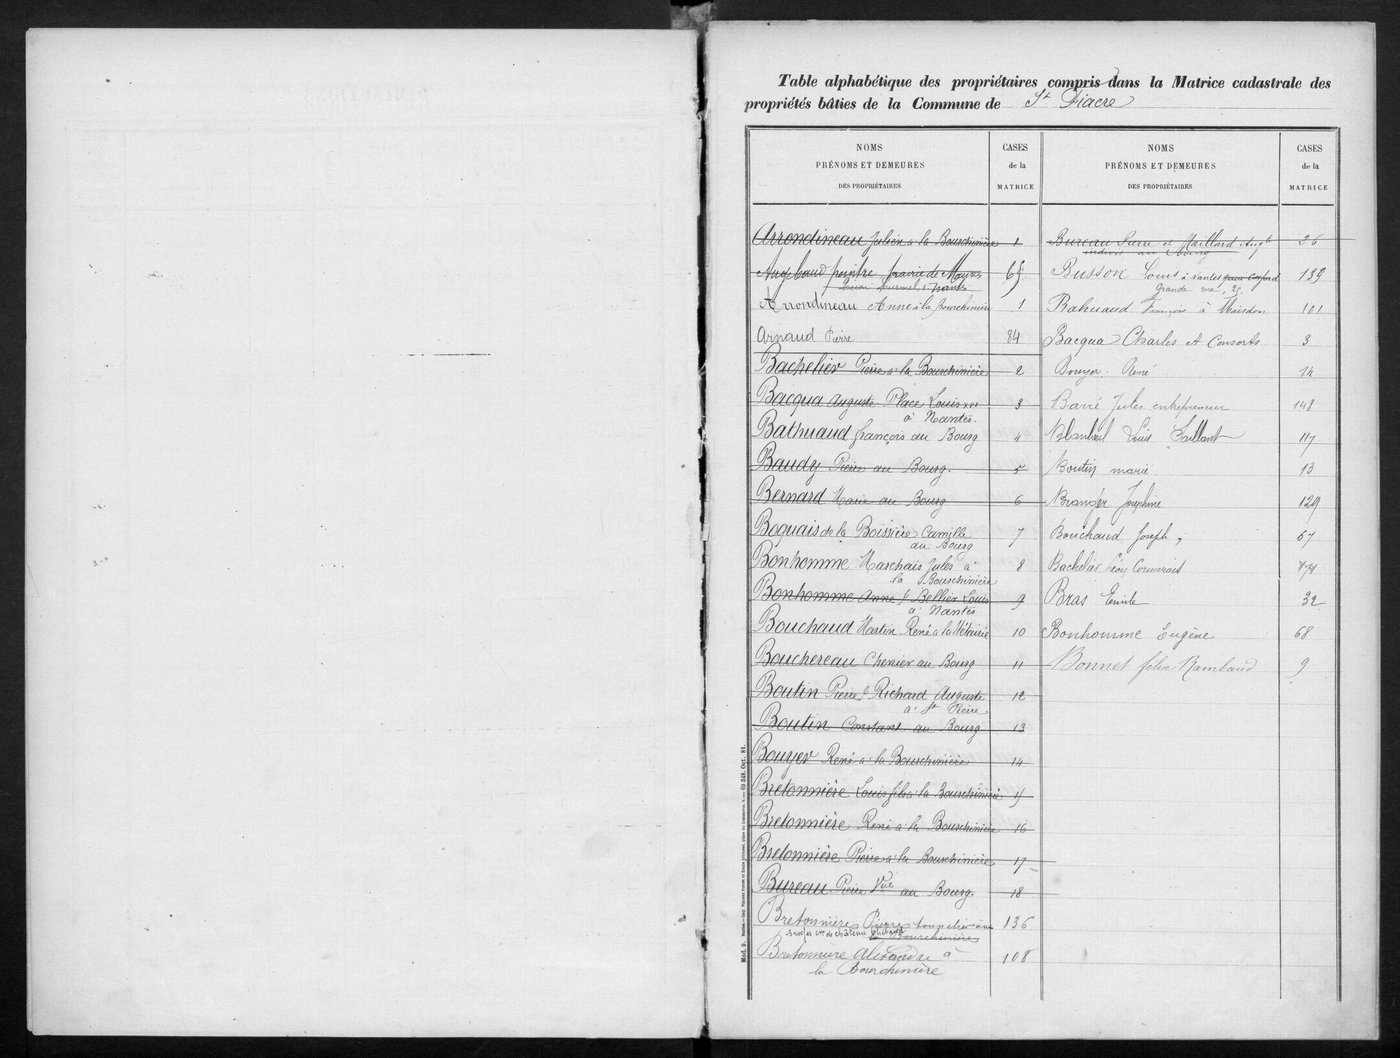 Table alphabétique des propriétaires compris dans la Matrice cadastrale des
propriétés bâties de la Commune de St Fiacre
NOMS
PRÉNOMS ET DEMEURES
DES PROPRIÉTAIRES
CASES
de la
MATRICE
Arrondineau Julien à la Bourchinière 1
peintre prairie de Mauves 65
Arrondineau Anne à la Bourchinière 1
Arnaud Pierre 84
Bachelier Pierre à la Bourchinière 2
Bacqua Auguste Place Louis XVI 3
à Nantes.
Bahuaud françois au Bourg 4
Baudy Pierre au Bourg. 5
Bernard Marie au Bourg 6
Boquais de la Boissière Camille 7
au Bourg
Bonhomme Marchais Jules à 8
la Bourchinière
Bonhomme Anne f. Bellier Louis 9
à Nantes
Bouchaud Martin René à la Métairie 10
Bouchereau Chenier au Bourg 11
Boutin Pierre f. Richard Auguste 12
à St Pierre
Boutin Constant au Bourg 13
Bouyer René à la Bourchinière 14
Bretonnière Louis fils à la Bourchinière 15
Bretonnière René à la Bourchinière 16
Bretonnière Pierre à la Bourchinière 17
Bureau Pierre Vve au Bourg. 18
Bretonnière Pierre tonnelier 136
la Bourchinière
Bretonnière Alexandre à 108
la Bourchinière
NOMS
PRÉNOMS ET DEMEURES
DES PROPRIÉTAIRES
CASES
de la
MATRICE
Bureau Pierre et Maillard Augte 26
indivis au Bourg
Busson Louis à Nantes 139
Grande rue, 25.
Bahuaud François à Maisdon 101
Bacqua Charles et Consorts 3
Bouyer René 14
Barré Jules entrepreneur 148
Blanloeil Louis Saillant 117
Boutin marie 13
Branger Joséphine 129
Bouchaud Joseph 67
Bachelier Léon Cormerais 174
Bras Emile 32
Bonhomme Eugène 68
Bonnet felix Rambaud 9